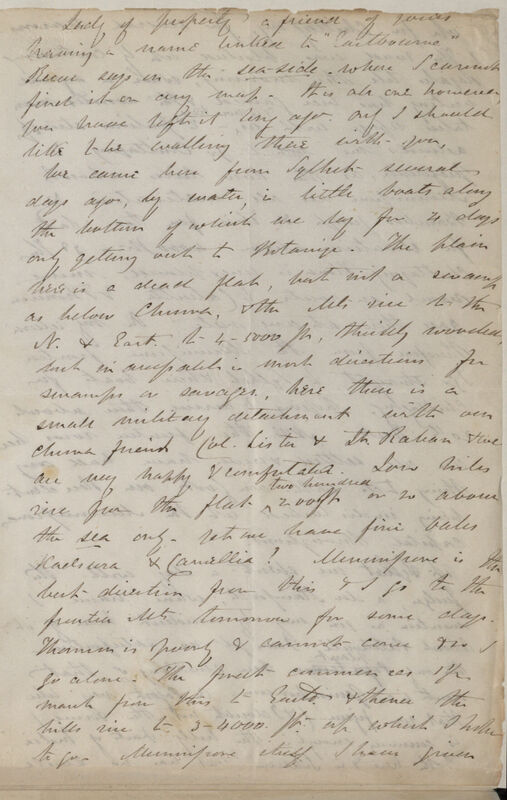 Lady of property a friend of yours
having a name linked to "Eastbourne"
Reeve says on the sea-side - where I cannot
find it on any map - this ale one however,
you have left it long ago - only I should
like to be walking there with you,
We came here from Sylhet several
days ago, by water, in little boats along
the bottom of which we lay for 4 days
only getting out to Botanize. The plain
here is a dead flat, but not a swamp
as below Churra, & the Mts rise to the
N. & East. to 4-5000 ft, thickly wooded,
but inaccessible in most directions for
swamps or savages, here there is a
small military detachment with our
Churra friend Col. Lister & Dr Raban & we
are very happy & comfortable. Low hills
rise from the flat two hundred 200 ft or so above
the sea only - yet we have fine oaks
Kadsura & Camellia? Munnipore is the
best direction from this & I go to the
frontier Mts tomorrow for some days.
Thomson is poorly & cannot come & so I
go alone. The forest commences 1 1/2
march from this to East & thence the
hills rise to 3-4000 ft. up which I hope
to go. Munnipore itself I have given